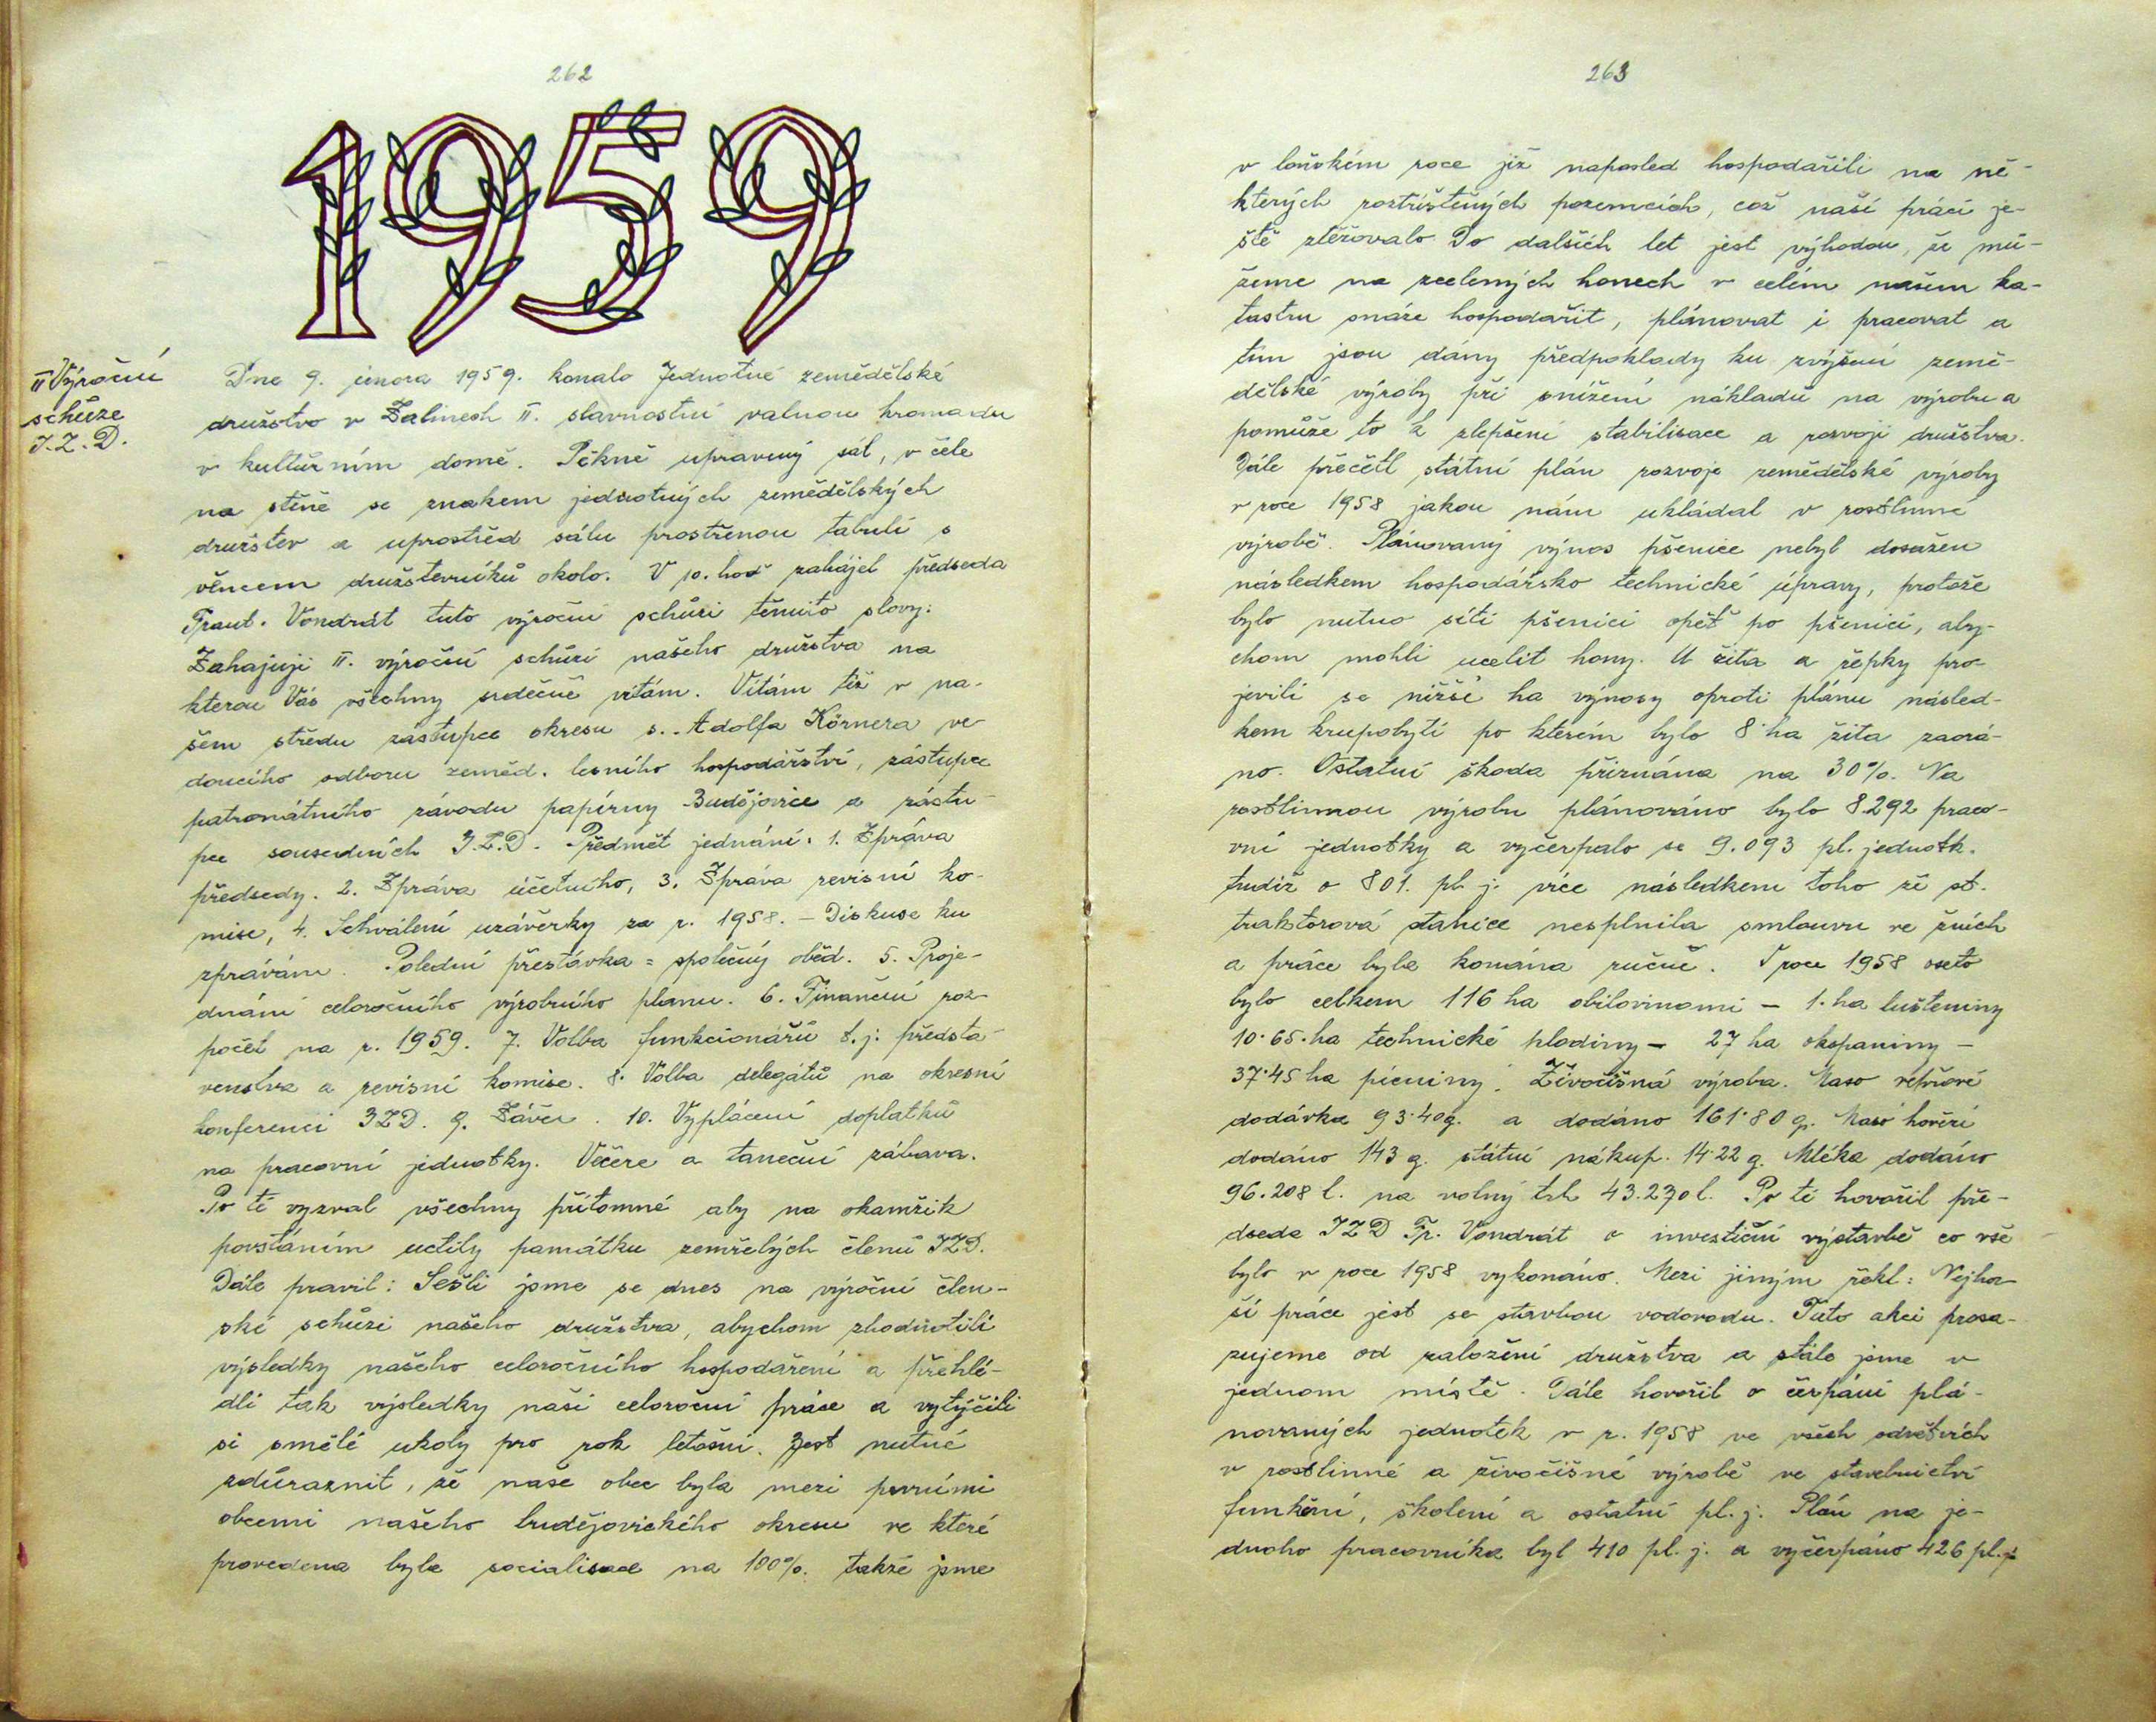 262
1959
II Výroční
schůze
J.Z.D.
Dne 9. února 1959. konalo Jednotné zemědělské
družstvo v Žalinech II. slavnostní valnou hromadu
v kulturním domě. Pěkně upravený sál, v čele
na stěně se znakem jednotných zemědělských
družstev a uprostřed sálu prostřenou tabulí s
věncem družsterníků okolo. V 10. hod zahájel předseda
Frant. Vondrát tuto výroční schůzi těmito slovy:
Zahajuji II. výroční schůzi našeho družstva na
kterou Vás všechny srdečně vítám. Vítám též v na-
šem středu zástupce okresu s. Adolfa Körnera ve-
doucího odboru zeměd. lesního hospodářství, zástupce
patronátního závodu papírny Budějovice a zástu-
pce sousedních J.Z.D. Předmět jednání: 1. Zpráva
předsedy. 2. Zpráva účetního, 3. Zpráva revisní ko-
mise, 4. Schválení uzávěrky za r. 1958. - Diskuse ku
zprávám. Polední přestávka = společný oběd. 5. Proje-
dnání celoročního výrobního planu. 6. Finanční roz-
počet na r. 1959. 7. Volba funkcionářů t.j. předsta-
venstva a revisní komise. 8. Volba delegátů na okresní
konferenci JZD. 9. Závěr. 10. Vyplácení doplatků
na pracovní jednotky. Večere a taneční zábava.
Po té vyzval všechny přítomné aby na okamžik
povstáním uctily památku zemřelých členů JZD.
Dále pravil: Sešli jsme se dnes na výroční člen-
ské schůzi našeho družstva, abychom zhodnotili
výsledky našeho celoročního hospodaření a přehlé-
dli tak výsledky naší celoroční práce a vytýčili
si smělé ukoly pro rok letošní. Jest nutné
zdůraznit, že naše obec byla mezi prvními
obcemi našeho budějovického okresu ve které
provedena byla socialisace na 100%. takže jsme
263
v loňském roce již naposled hospodařili na ně-
kterých roztříštěných pozemcích, což naší práci je-
ště ztěžovalo. Do dalších let jest výhodou, že mů-
žeme na zcelených honech v celém našem ka-
tastru snáze hospodařit, plánovat i pracovat a
tím jsou dány předpoklady ku zvýšení země-
dělské výroby při snížení nákladů na výrobu a
pomůže to k zlepšení stabilisace a rozvoji družstva.
Dále přečetl státní plán rozvoje zemědělské výroby
v roce 1958 jakou nám ukládal v rostlinné
výrobě. Plánovaný výnos pšenice nebyl dosažen
následkem hospodářsko technické úpravy, protože
bylo nutno síti pšenici opět po pšenici, aby-
chom mohli ucelit hony. U žita a řepky pro-
jevili se nižší ha výnosy oproti plánu násled-
kem krupobytí po kterém bylo 8 ha žita zaorá-
no. Ostatní škoda přiznána na 30%. Na
rostlinnou výrobu plánováno bylo 8.292 praco-
vní jednotky a vyčerpalo se 9.093 pl. jednotk.
tudíž o 801. pl. j. více následkem toho že st.
traktorová stanice nesplnila smlouvu ve žních
a práce byla konána ručně. V roce 1958 oseto
bylo celkem 116 ha obilovinami - 1. ha luštěniny
10.65.ha technické plodiny - 27 ha okopaniny -
37.45 ha pícniny. Živočišná výroba. Maso vepřové
dodávka 93.40q. a dodáno 161.80 q. Maso hovězí
dodáno 143 q. státní nákup. 14.22 q. Mléka dodáno
96.208 l. na volný trh 43.270 l. Po té hovořil pře-
dseda JZD Fr. Vondrát o investiční výstavbě co vše
bylo v roce 1958 vykonáno. Mezi jiným řekl: Nejhor
ší práce jest se stavbou vodovodu. Tuto akci prosa-
zujeme od založení družstva a stále jsme v
jednom místě. Dále hovořil o čerpání plá-
novaných jednotek v r. 1958 ve všech odvětvích
v rostlinné a živočišné výrobě ve stavebnictví
funkční, školení a ostatní pl. j. Plán na je-
dnoho pracovníka byl 410 pl. j. a vyčerpáno 426 pl. j.